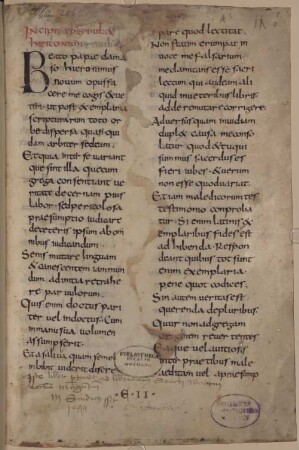 Incipit epistula
hieronimi
Beato papae dama
so hieronimus
Nouum opus fa
cere me cogis & ue
teri ut post exemplaria
scripturarum toto or
be dispersa quasi qui
dam arbiter sedeam
Et quia inter se uariant
que sint illa que cum
greca consentiant ue
ritate decernam pius
labor sed periculosa
praesumptio iudicare
de ceteris ipsum ab om
nibus iudicandum
Senis mutare linguam
& canescentem iam mun
dum ad initia retrahe
re paruulorum
Quis enim doctus pari
ter uel indoctus Cum
in manus uolumen
assumpserit
Et a saliua quam semel
inbibit uiderit discre
pare quod lectitat
Non statim erumpat in
uoce me falsarium
me clamitans esse sacri
legum qui audeam ali
quid in ueteribus libris
addere mutare corrigere
Aduersus quam inuidiam
duplex causa me conso
latur quod & tu qui
summus sacerdos es
fieri iubes & uerum
non esse quod uariat
Etiam maledicorum tes
timonio conproba
tur Si enim latinis ex
emplaribus fides est
adhibenda Respon
deant quibus tot sunt
enim exemplaria
pene quot codices
Sin autem ueritas est
querenda de pluribus
Cur non ad gregam
originem reuertentes
ea que uel a uitiosis
interpraetibus male
aedita uel a praesump
E·II